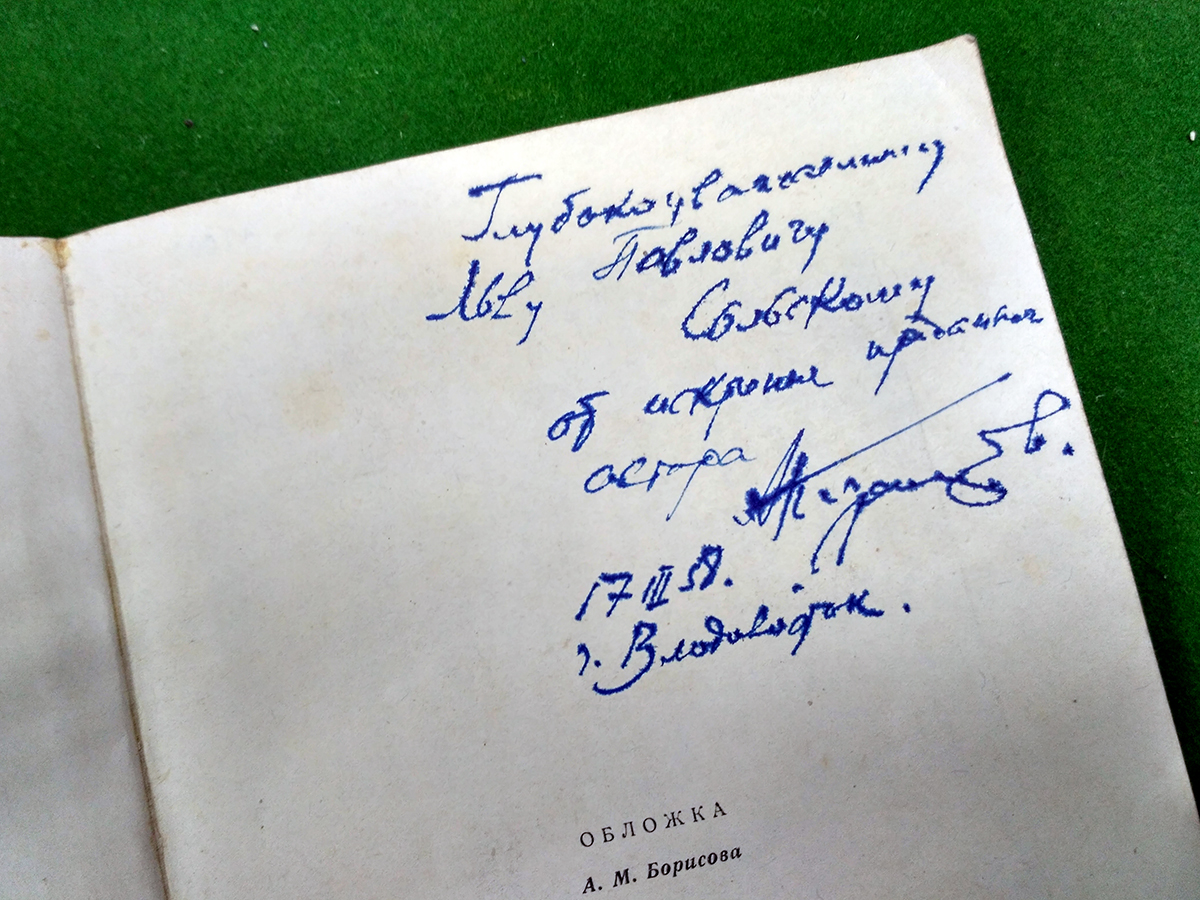 Глубокоуважаемому
Льву Павловичу
от искренне преданного
автора
17 III 58.
г. Владивосток.
ОБЛОЖКА
А. М. Борисова